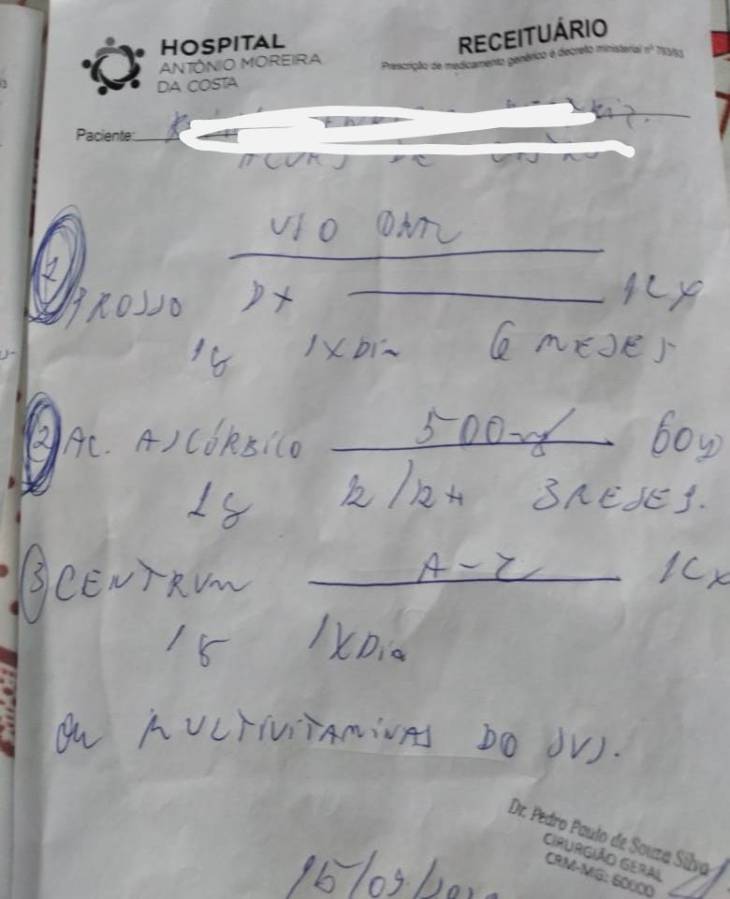 HOSPITAL
ANTÔNIO MOREIRA
DA COSTA
RECEITUÁRIO
Prescrição de medicamento genérico é decreto ministerial nº 793/93
Paciente:
USO ORAL
1 PROSSO D+ 1CX
1 1XDia 6 MESES
2 AC. ASCÓRBICO 500mg 60
1 12/12H 3 MESES.
3 CENTRUM A-Z 1CX
1 1XDia
OU MULTIVITAMINAS DO SUS.
Dr. Pedro Paulo de Souza Silva
CIRURGIÃO GERAL
CRM-MG: 60000